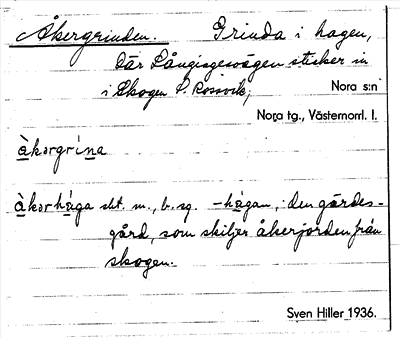 Åkergrinden. Grinda i hagen,
där Långisgesvägen sticker in
i skogen S. Rossvik;
Nora s:n
Nora tg., Västernorrl. l.
àkørgrìna
àkørhàga sbt. m., b. sg. -hàgan, den gärdes-
gård, som skiljer åkerjorden från
skogen.
Sven Hiller 1936.